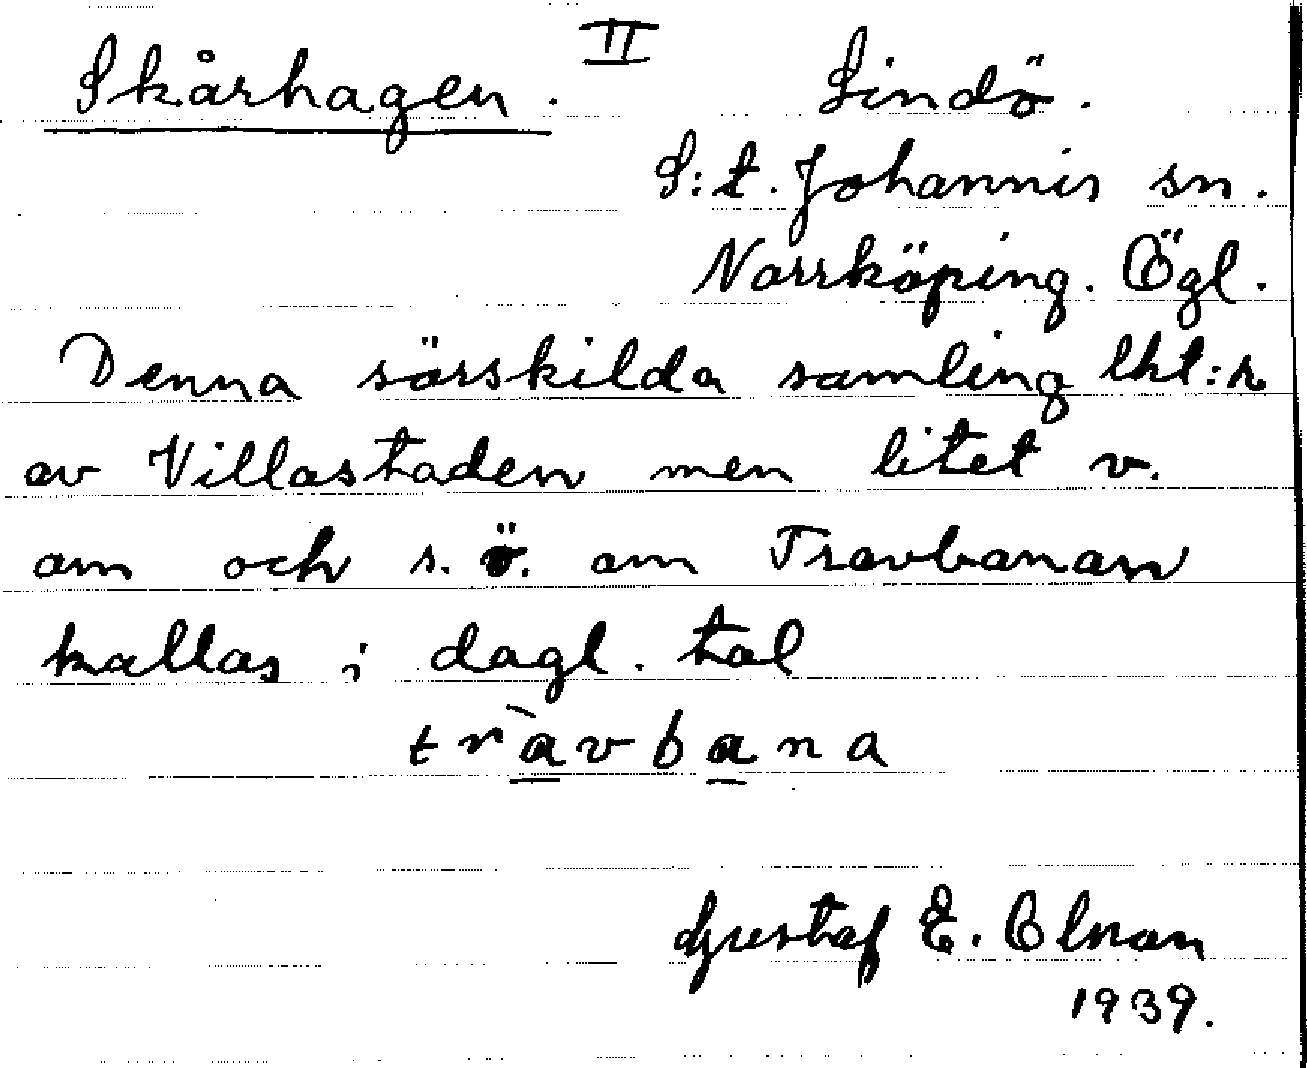 II
Skårhagen. Lindö.
S:t. Johannis sn.
Norrköping. Ögl.
Denna särskilda samling lht:r
av Villastaden men litet v.
om och s.ö. om Travbanan
kallas i dagl. tal
tràvbana
Gustaf E. Olson
1939.